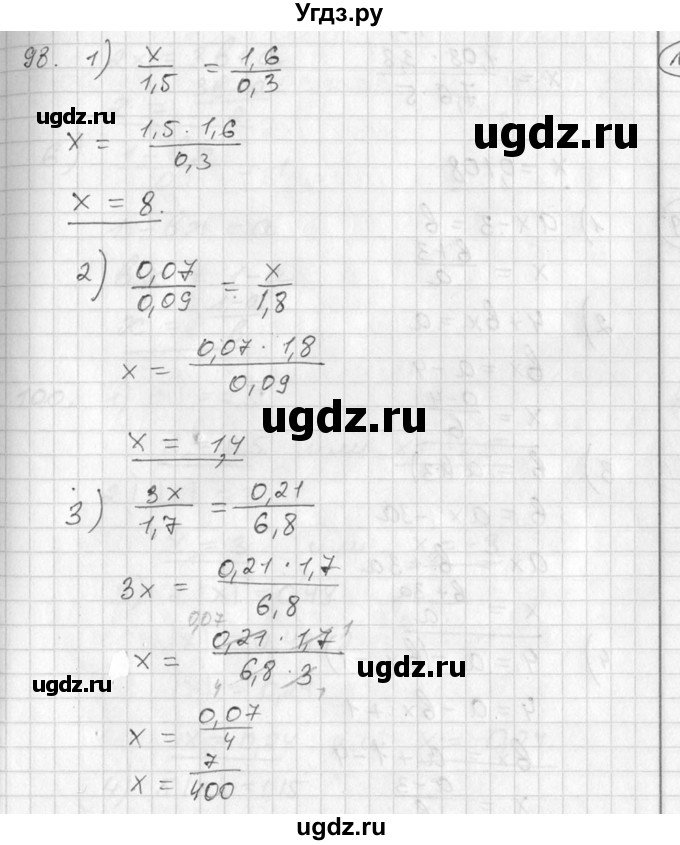 Угдз.ру
98. 1) x/1,5 = 1,6/0,3
ugdz.ru
ugdz.ru
x = 1,5 · 1,6/0,3
x = 8.
2) 0,07/0,09 = x/1,8
x = 0,07 · 1,8/0,09
ugdz.ru
x = 1,4
3) 3x/1,7 = 0,21/6,8
3x = 0,21 · 1,7/6,8
0,07 1
x = 0,21 · 1,7/6,8 · 3
4 1
ugdz.ru
ugdz.ru
x = 0,07/4
x = 7/400
ugdz.ru
ugdz.ru